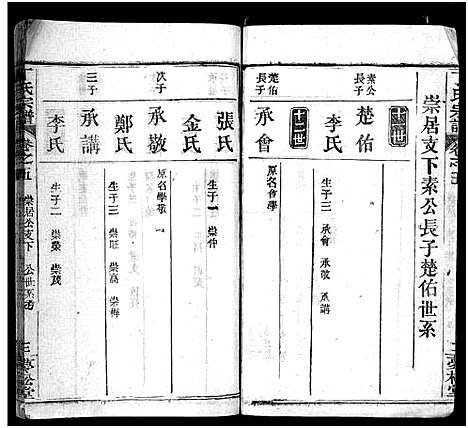 崇居支下素公長子楚佑世系
十一世
素公長子
楚佑
李氏
生子三 承會 承敬 承講
十二世
楚佑長子
承會
原名會學
張氏
生子一 崇仲
金氏
次子
承敬
原名學敬
鄭氏
生子三 崇旺 崇高 崇梅
三子
承講
李氏
生子二 崇榮 崇茂
丁氏宗譜
卷之五
崇居公支下
三
夢松堂